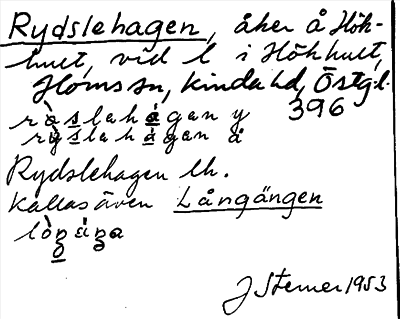 Rydslehagen, åker å Hök-
hult, vid l i Hökhult,
Horns sn, Kinda hd, Östg.l.
396
rỳslehágen y
rỳslehágen å
Rydslehagen lh.
Kallas även Långängen
lòŋéŋa
J Sterner 1953